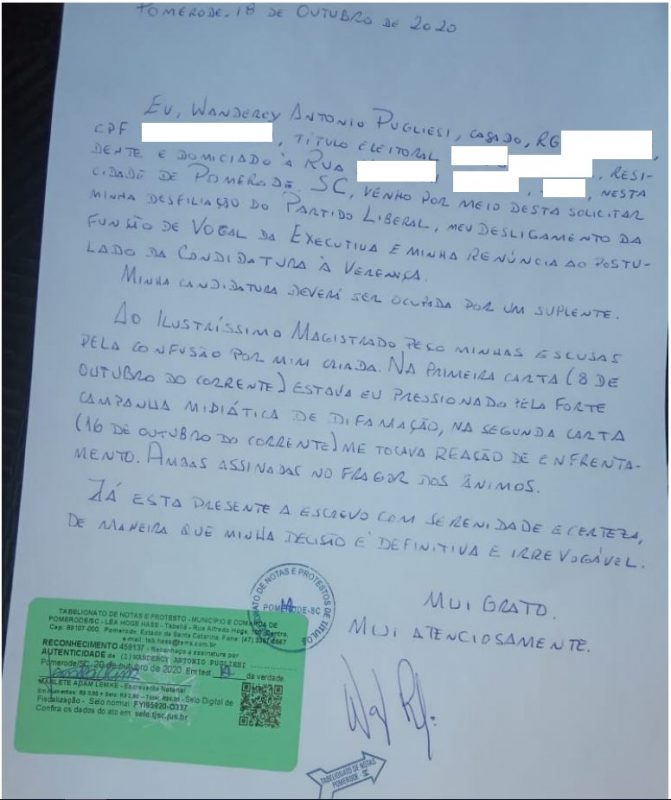 POMERODE, 18 DE OUTUBRO DE 2020
EU, WANDERCY ANTONIO PUGLIESI, CASADO, RG
CPF , TÍTULO ELEITORAL , RESI-
DENTE E DOMICIADO À RUA , , , NESTA
CIDADE DE POMERODE. SC, VENHO POR MEIO DESTA SOLICITAR
MINHA DESFILIAÇÃO DO PARTIDO LIBERAL, MEU DESLIGAMENTO DA
FUNÇÃO DE VOGAL DA EXECUTIVA E MINHA RENÚNCIA AO POSTU-
LADO DA CANDIDATURA À VERENÇA.
MINHA CANDIDATURA DEVERÁ SER OCUPADA POR UM SUPLENTE.
AO ILUSTRÍSSIMO MAGISTRADO PEÇO MINHAS ESCUSAS
PELA CONFUSÃO POR MIM CRIADA. NA PRIMEIRA CARTA (8 DE
OUTUBRO DO CORRENTE) ESTAVA EU PRESSIONADO PELA FORTE
CAMPANHA MIDIÁTICA DE DIFAMAÇÃO, NA SEGUNDA CARTA
(16 DE OUTUBRO DO CORRENTE) ME TOCAVA REAÇÃO DE ENFRENTA-
MENTO. AMBAS ASSINADAS NO FRAGOR DOS ÂNIMOS.
JÁ ESTA PRESENTE A ESCREVO COM SERENIDADE E CERTEZA,
DE MANEIRA QUE MINHA DECISÃO É DEFINITIVA E IRREVOGÁVEL.
MUI GRATO.
MUI ATENCIOSAMENTE.
TABELIONATO DE NOTAS E PROTESTOS DE TÍTULOS
POMERODE-SC
TABELIONATO DE NOTAS E PROTESTO - MUNICÍPIO E COMARCA DE
POMERODE/SC - LÉA HOGE HASS - Tabeliã - Rua Alfredo Hoge, Centro,
Cep: 89107-000, Pomerode, Estado de Santa Catarina Fone (47)
RECONHECIMENTO 459137 - Reconheço a assinatura por
AUTENTICIDADE de (1) WANDERCY ANTONIO PUGLIESI
Pomerode/SC, 20 de outubro de 2020. Em test da verdade
MARLETE ADAM LEMKE - Escrevente Notarial
Selo Digital de
Fiscalização - Selo normal
Confira os dados do ato em selo.tjsc.jus.br
TABELIONATO DE NOTAS
POMERODE